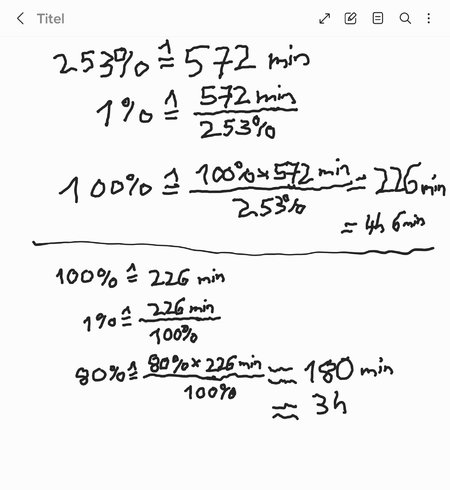 Titel
253% ≙ 572 min
1% ≙ 572 min / 253%
100% ≙ 100% × 572 min / 253% = 226 min
= 4h 6min
100% ≙ 226 min
1% ≙ 226 min / 100%
80% ≙ 80% × 226 min / 100% ≈ 180 min
≈ 3h